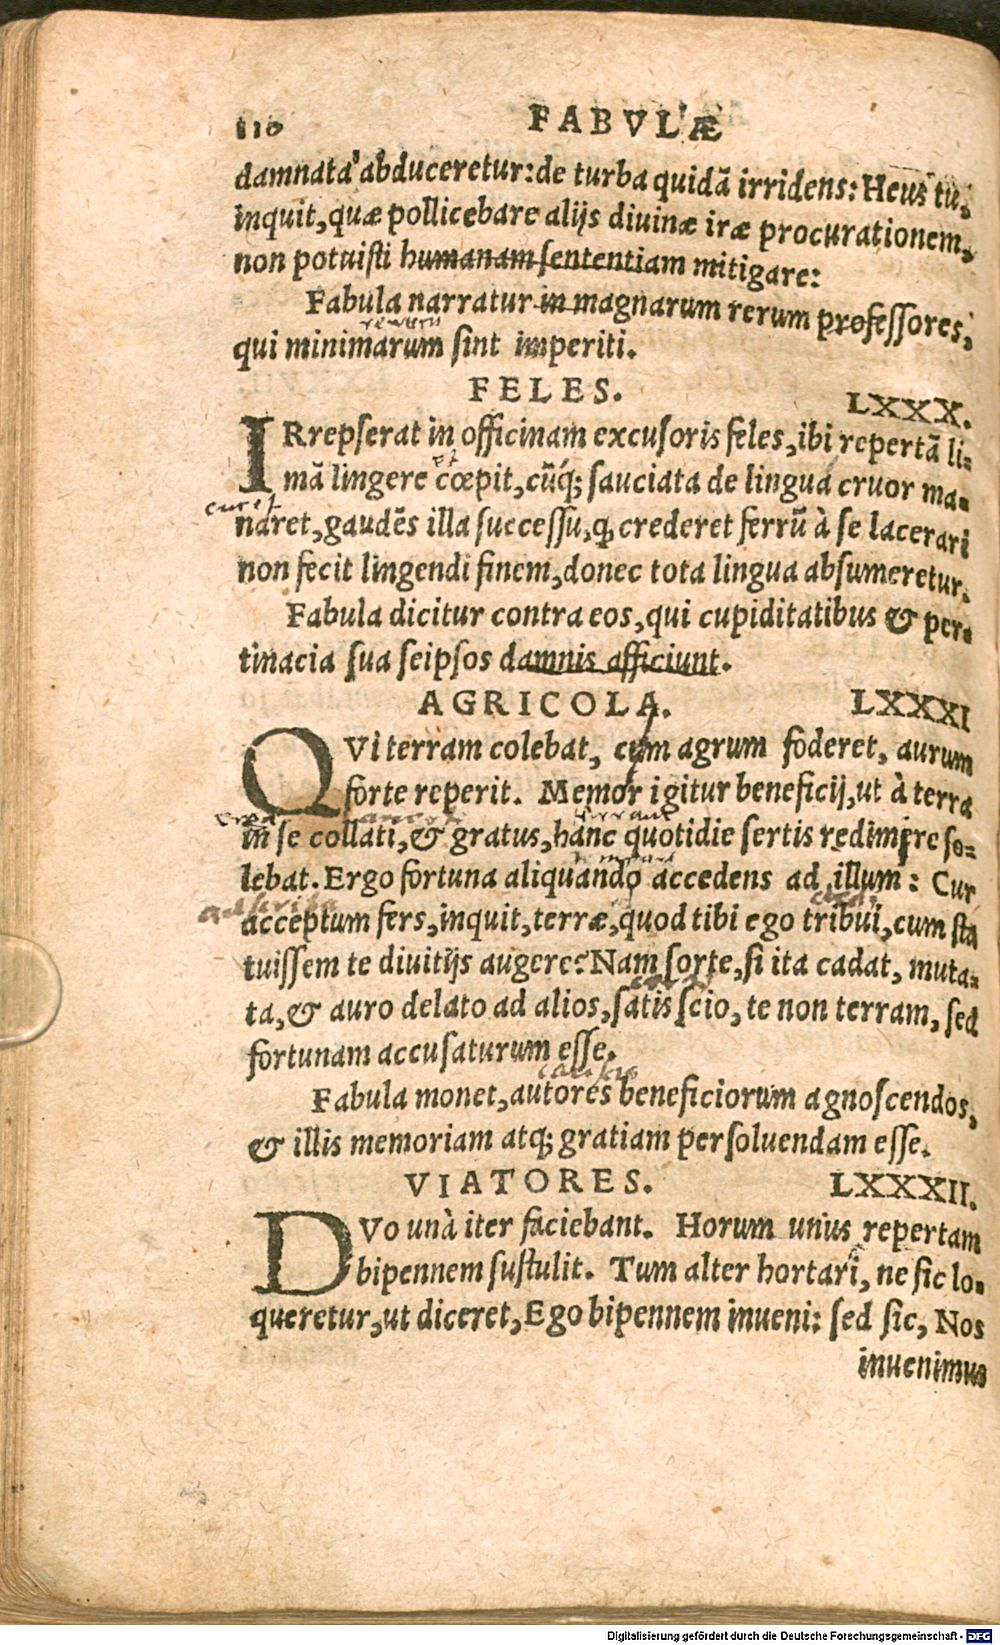 110 FABVLÆ
damnata abduceretur: de turba quidã irridens: Heus tu,
inquit, quæ pollicebare alijs diuinæ iræ procurationem,
non potuisti humanam sententiam mitigare:
Fabula narratur in magnarum rerum professores,
rerum
qui minimarum sint imperiti.
FELES. LXXX.
IRrepserat in officinam excusoris feles, ibi repertã li-
et
mã lingere cœpit, cũq́; sauciata de lingua cruor ma-
naret, gaudẽs illa successu, q̃ crederet ferrũ à se lacerari
non fecit lingendi finem, donec tota lingua absumeretur.
Fabula dicitur contra eos, qui cupiditatibus & per-
tinacia sua seipsos damnis afficiunt.
AGRICOLA. LXXXI
QVi terram colebat, cum agrum foderet, aurum
forte reperit. Memor igitur beneficij, ut à terra
in se collati, & gratus, hanc quotidie sertis redimire so-
lebat. Ergo fortuna aliquando accedens ad illum: Cur
acceptum fers, inquit, terræ, quod tibi ego tribui, cum sta
tuissem te diuitijs augere? Nam sorte, si ita cadat, muta-
ta, & auro delato ad alios, satis scio, te non terram, sed
fortunam accusaturum esse.
Fabula monet, autores beneficiorum agnoscendos,
& illis memoriam atq; gratiam persoluendam esse.
VIATORES. LXXXII.
DVo unà iter faciebant. Horum unius repertam
bipennem sustulit. Tum alter hortari, ne sic lo-
queretur, ut diceret, Ego bipennem inueni: sed sic, Nos
inuenimus
Digitalisierung gefördert durch die Deutsche Forschungsgemeinschaft - DFG